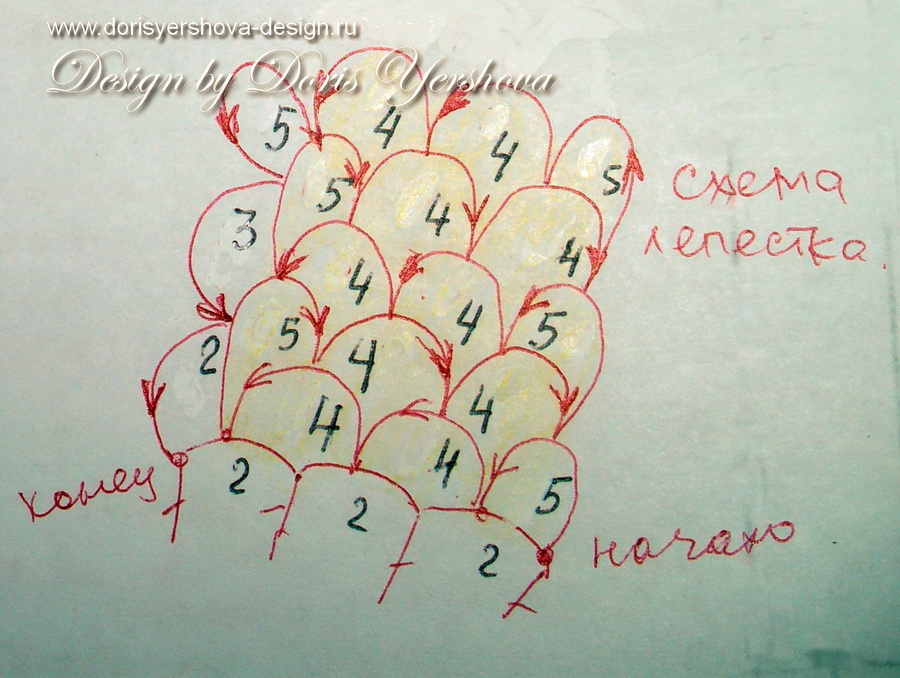 www.dorisyershova-design.ru
Design by Doris Yershova
5 4 4 5
схема
лепестка.
3 5 4 4
4 4 5
2 5 4 4
4 4 5
конец
2 2 2
начало